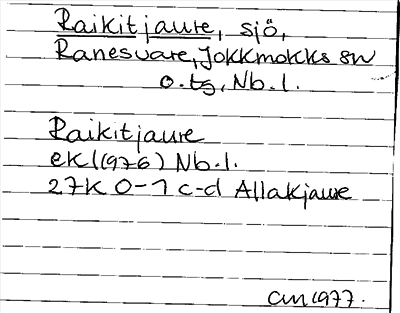 Raikitjaure, sjö,
Ranesvare, Jokkmokks sn
o. tg, Nb. l.
Raikitjaure
ek (1976) Nb. l.
27K 0-1 c-d Allakjaure
CM 1977.